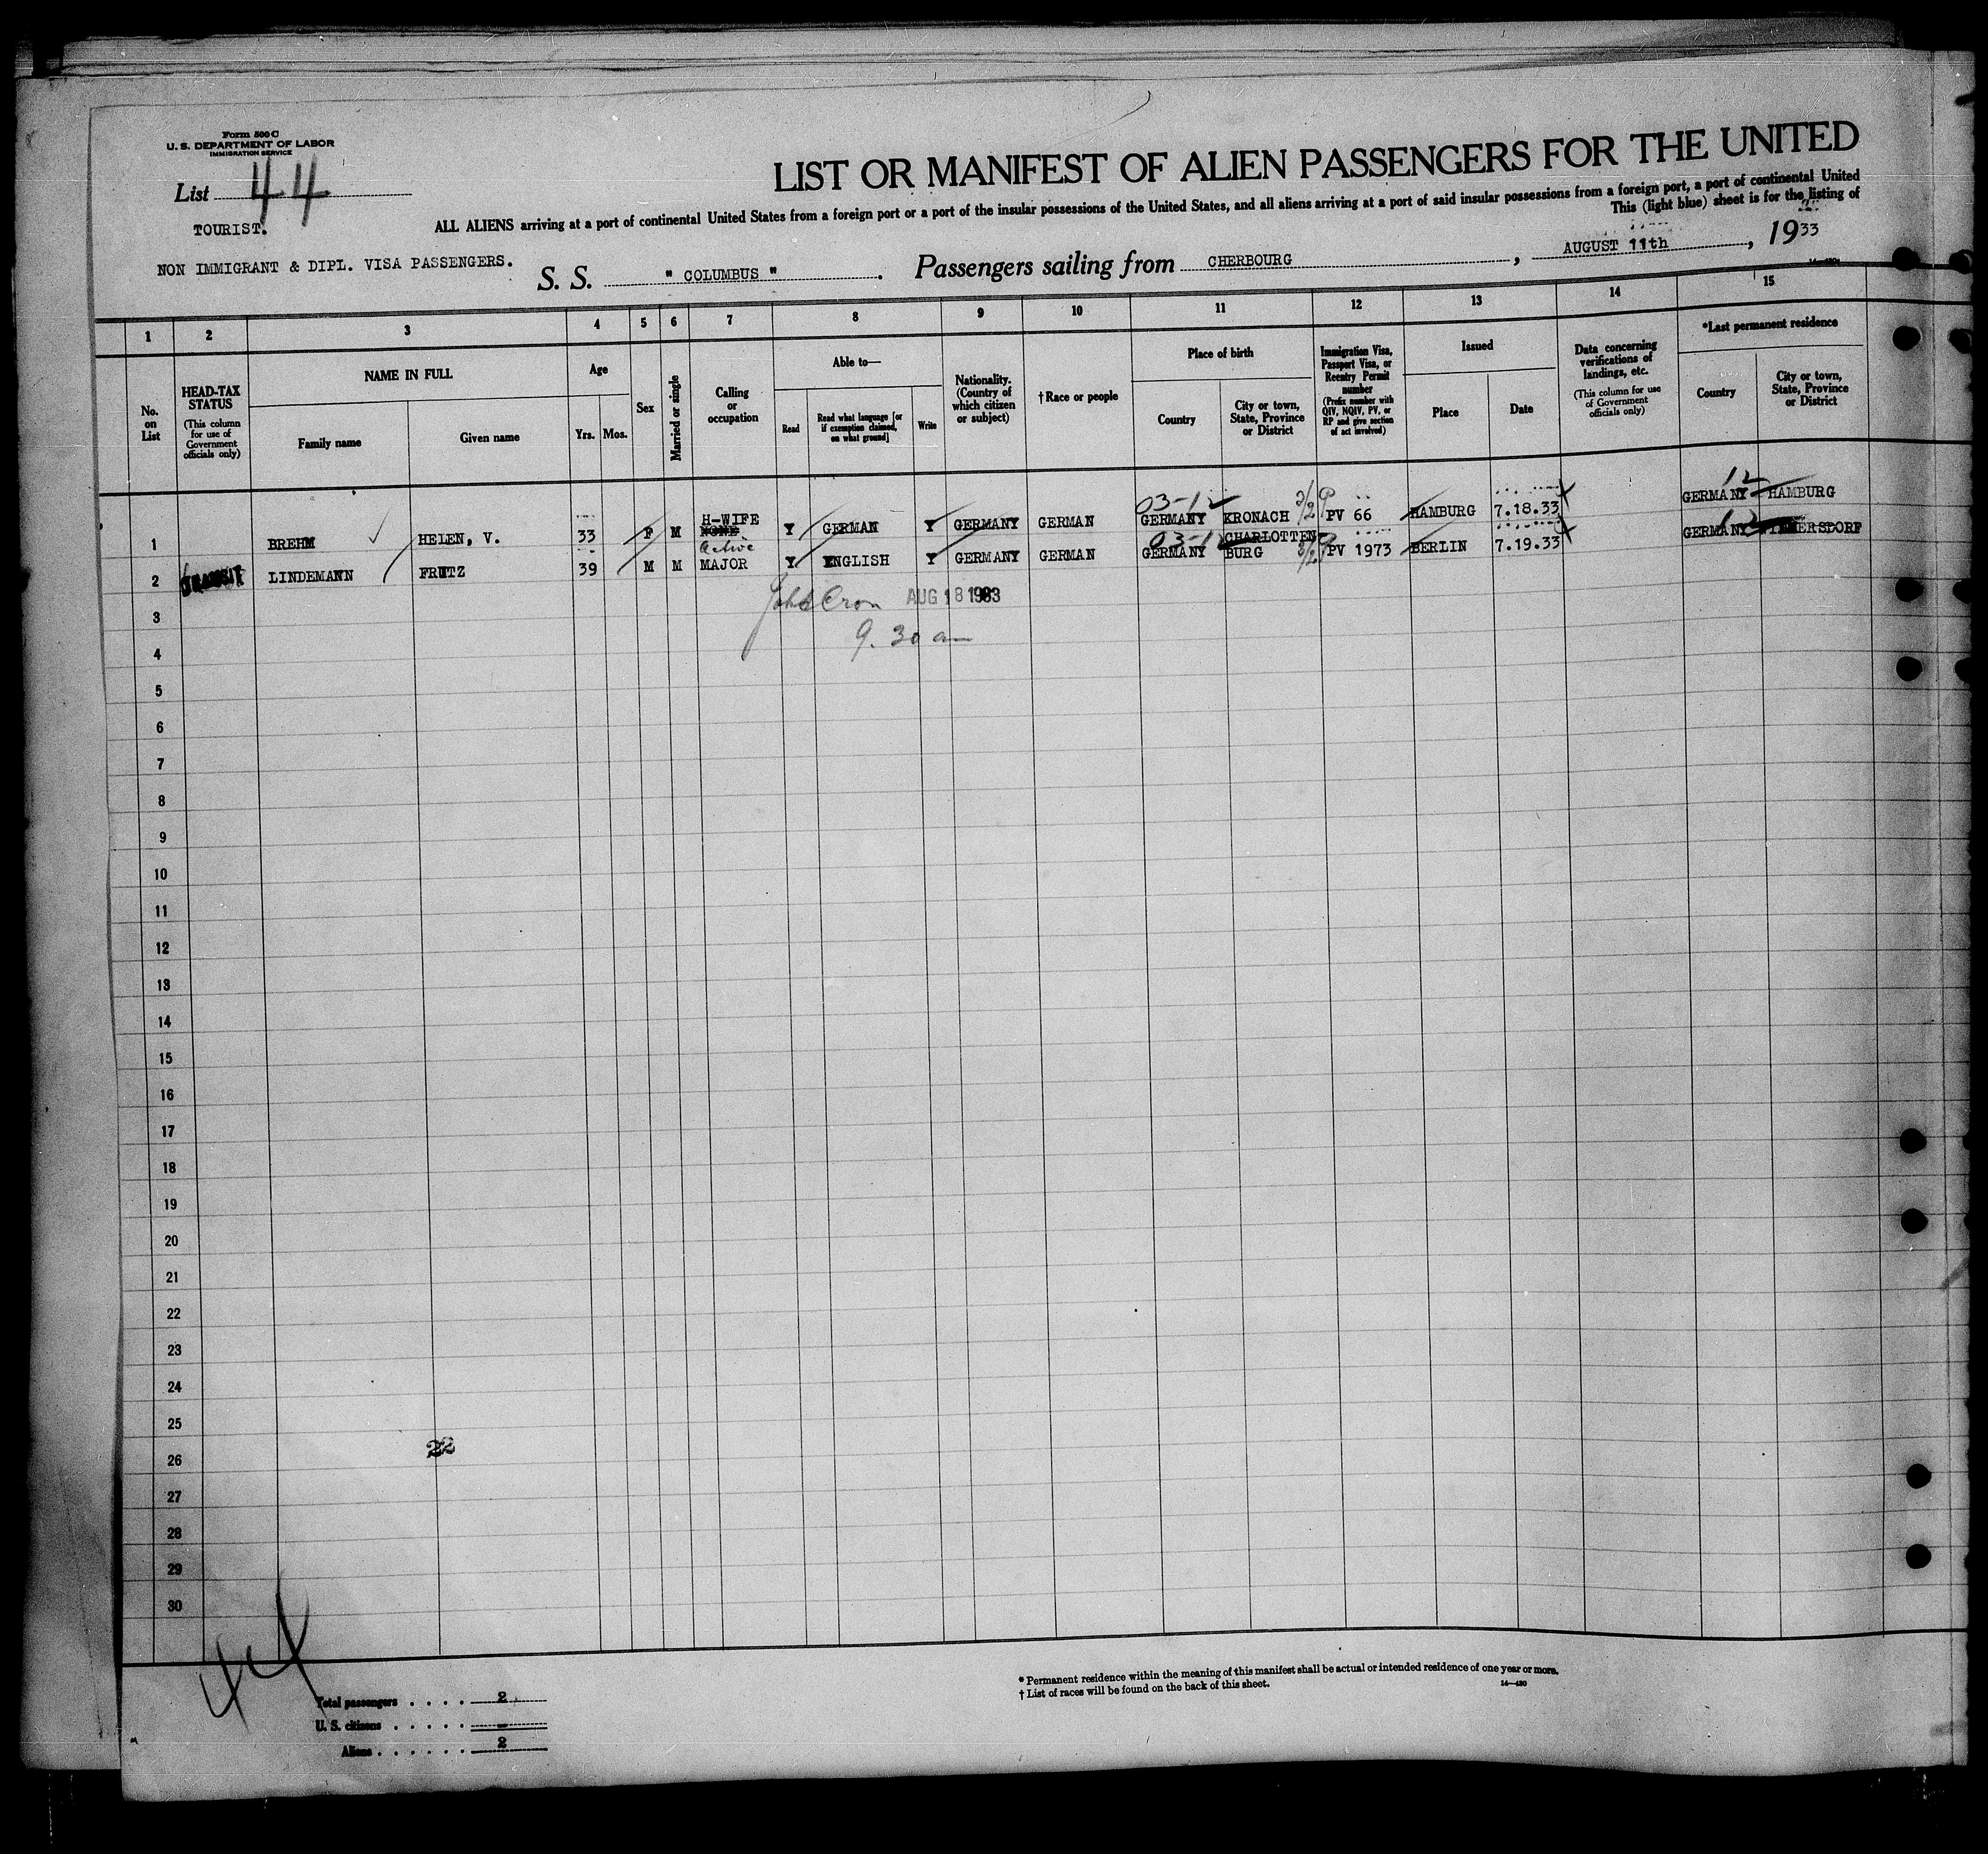 Form 500 C
U. S. DEPARTMENT OF LABOR
IMMIGRATION SERVICE
List 44
TOURIST.
NON IMMIGRANT & DIPL. VISA PASSENGERS.
LIST OR MANIFEST OF ALIEN PASSENGERS FOR THE UNITED
ALL ALIENS arriving at a port of continental United States from a foreign port or a port of the insular possessions of the United States, and all aliens arriving at a port of said insular possessions from a foreign port, a port of continental United
This (light blue) sheet is for the listing of
S. S. " COLUMBUS ". Passengers sailing from CHERBOURG, AUGUST 11th, 1933
1 2 3 4 5 6 7 8 9 10 11 12 13 14 15
No. on List
HEAD-TAX STATUS
(This column for use of Government officials only)
NAME IN FULL
Family name
Given name
Age
Yrs. Mos.
Sex
Married or single
Calling or occupation
Able to—
Read
Read what language [or if exemption claimed, on what ground]
Write
Nationality. (Country of which citizen or subject)
† Race or people
Place of birth
Country
City or town, State, Province or District
Immigration Visa, Passport Visa, or Reentry Permit number
(Prefix number with QIV, NQIV, PV, or RP and give section of act involved)
Issued
Place
Date
Data concerning verifications of landings, etc.
(This column for use of Government officials only)
*Last permanent residence
Country
City or town, State, Province or District
03-12 3/2 12
1 BREHM HELEN, V. 33 F M H-WIFE NONE Y GERMAN Y GERMANY GERMAN GERMANY KRONACH PV 66 HAMBURG 7.18.33 GERMANY HAMBURG
2 TRANSIT LINDEMANN FRITZ 39 M M Active MAJOR Y ENGLISH Y GERMANY GERMAN GERMANY CHARLOTTENBURG 3/2 PV 1973 BERLIN 7.19.33 GERMANY
3 AUG 18 1933
4 9.30 am
5
6
7
8
9
10
11
12
13
14
15
16
17
18
19
20
21
22
23
24
25
26 22
27
28
29
30
44
Total passengers . . . . 2
U. S. citizens . . . . . -
Aliens . . . . . . 2
* Permanent residence within the meaning of this manifest shall be actual or intended residence of one year or more.
† List of races will be found on the back of this sheet.
14—430